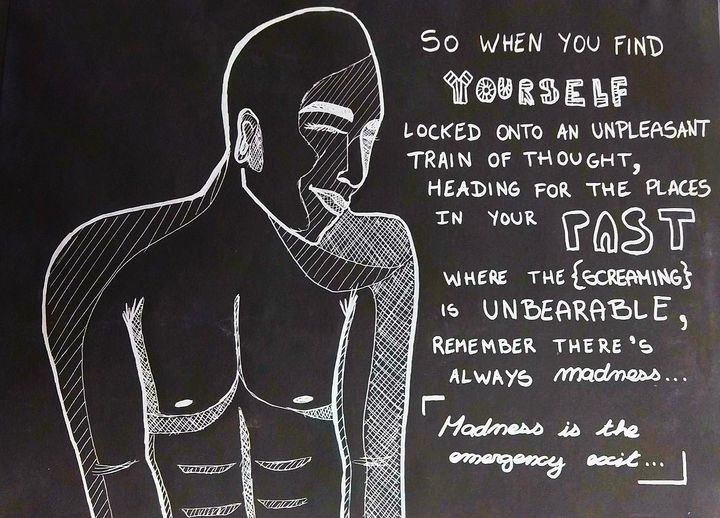 SO WHEN YOU FIND
YOURSELF
LOCKED ONTO AN UNPLEASANT
TRAIN OF THOUGHT,
HEADING FOR THE PLACES
IN YOUR PAST
WHERE THE {SCREAMING}
IS UNBEARABLE,
REMEMBER THERE'S
ALWAYS madness...
Madness is the
emergency exit...